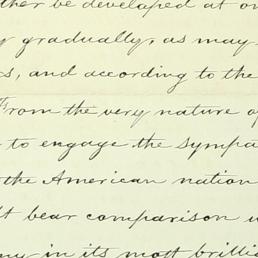 ther be developed at on
gradually, as may
s, and according to the
From the very nature of
to engage the sympa
the American nation
t bear comparison w
ny in its most brilli